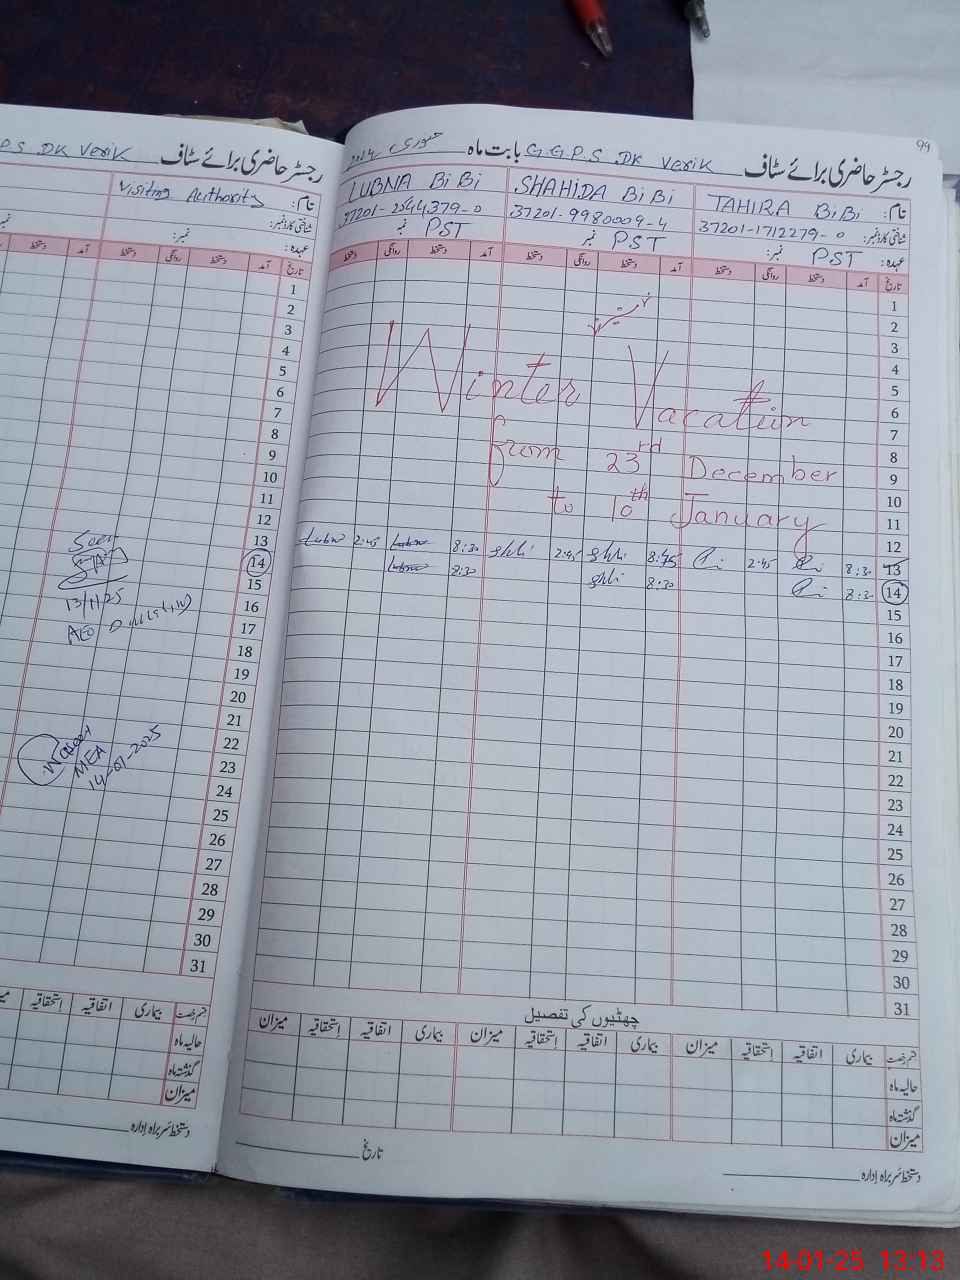 99
رجسٹر حاضری برائے سٹاف G.G.P.S DK Verik بابت ماہ جنوری
نام: TAHIRA BiBi SHAHIDA BiBi LUBNA BiBi
شناختی کارڈ نمبر: 37201-1712279-0 37201-9980009-4 37201-2544379-0
عہدہ: PST نمبر: PST نمبر PST نمبر
تاریخ آمد دستخط روانگی دستخط آمد دستخط روانگی دستخط آمد دستخط روانگی دستخط
1
2
3
4
5
6
7
8
9
10
11
12
Winter Vacation
from 23rd December
to 10th January
13 8:30 2:45 8:45 2:45 8:30 2:45
14 8:30 8:30 8:30
15
16
17
18
19
20
21
22
23
24
25
26
27
28
29
30
31
چھٹیوں کی تفصیل
قسم رخصت بیماری اتفاقیہ استحقاقیہ میزان بیماری اتفاقیہ استحقاقیہ میزان بیماری اتفاقیہ استحقاقیہ میزان
حالیہ ماہ
گذشتہ ماہ
میزان
دستخط سربراہ ادارہ
تاریخ
رجسٹر حاضری برائے سٹاف P.S DK Verik
نام: Visiting Authority
شناختی کارڈ نمبر:
عہدہ: نمبر:
تاریخ آمد دستخط روانگی دستخط آمد دستخط
1
2
3
4
5
6
7
8
9
10
11
12
13
14
15
16
17
18
19
20
21
22
23
24
25
26
27
28
29
30
31
Seen
13/1/25
AEO
MEA
14-01-2025
قسم رخصت بیماری اتفاقیہ استحقاقیہ
حالیہ ماہ
گذشتہ ماہ
میزان
دستخط سربراہ ادارہ
14-01-25 13:13